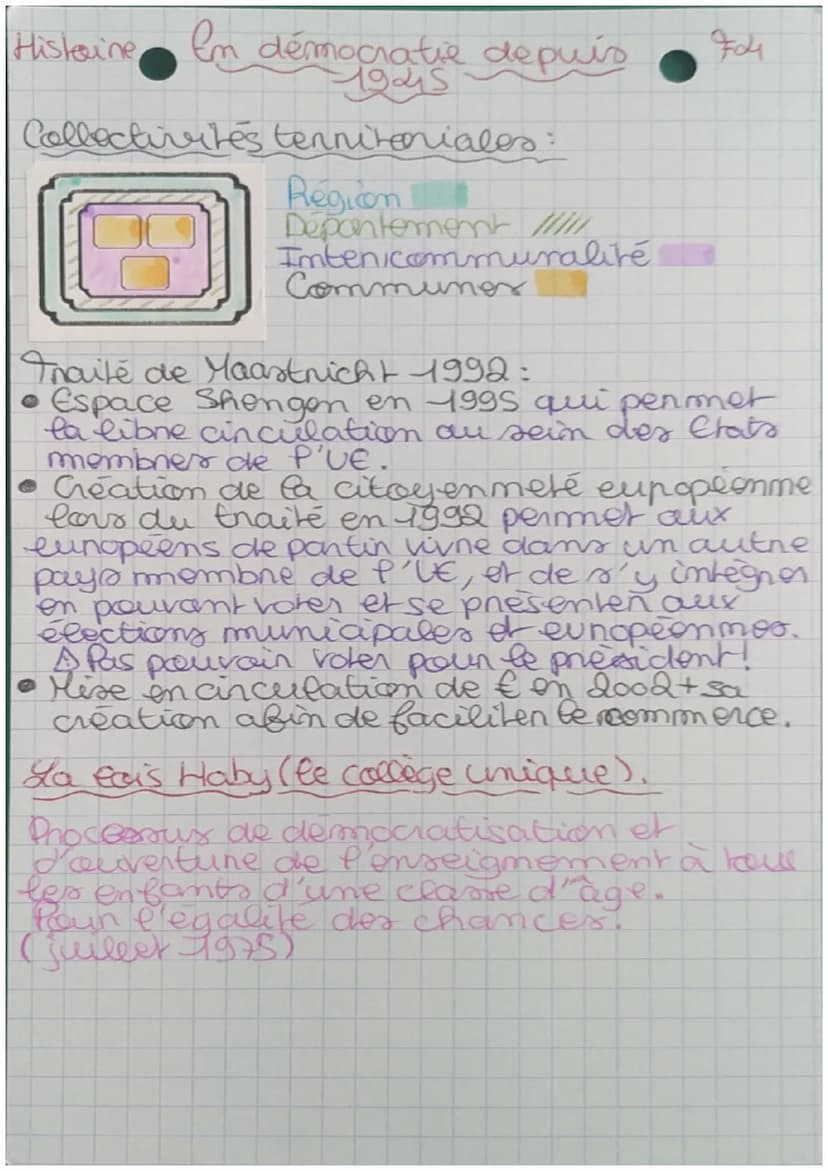 Histoire En démocratie depuis
1945
Collectivités territoriales :
Région
Département
Intericommunalité
Communes
Traité de Maastricht 1992 :
• Espace Shengen en 1995 qui permet
la libre circulation au sein des Etats
membres de l'UE.
• Création de la citoyenneté européenne
lors du traité en 1992 permet aux
européens de partir vivre dans un autre
pays membre de l'UE, et de s'y intégrer
en pouvant voter et se présenter aux
élections municipales et européennes.
⚠ Pas pouvoir voter pour le président !
• Mise en circulation de € en 2002 + sa
création afin de faciliter le commerce.
La lois Haby (le collège unique).
Processus de démocratisation et
d'ouverture de l'enseignement à tous
les enfants d'une classe d'âge.
Pour l'égalité des chances.
(juillet 1975)